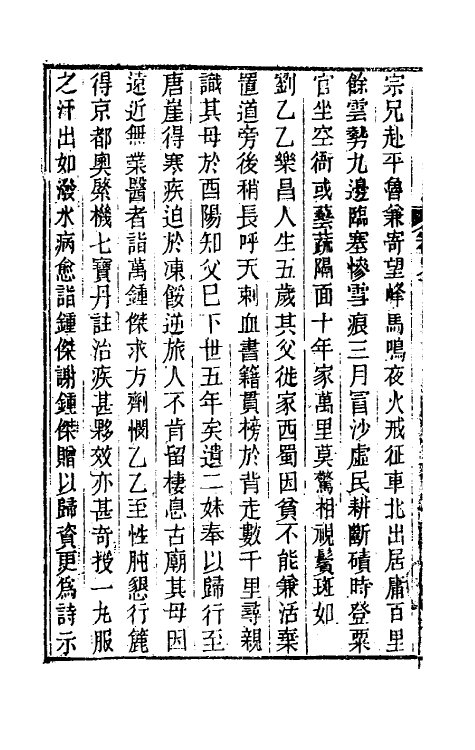 宗兄赴平魯兼寄望峰馬鳴夜火戒征車北出居庸百里
餘雲勢九邊臨塞慘雪痕三月冒沙虛民耕斷磧時登粟
官坐空衙或藝蔬隔面十年家萬里莫驚相視鬢斑如
劉乙乙樂昌人生五歲其父徙家西蜀因貧不能兼活棄
置道旁後稍長呼天刺血書籍貫榜於背走數千里尋親
識其母於酉陽知父已下世五年矣遺二妹奉以歸行至
唐崖得寒疾迫於凍餒逆旅人不肯留棲息古廟其母因
遠近無業醫者詣萬鍾傑求方劑憫乙乙至性肫懇行篋
得京都奧縻機七寶丹註治疾甚夥效亦甚奇授一丸服
之汗出如潑水病愈詣鍾傑謝鍾傑贈以歸資更為詩示